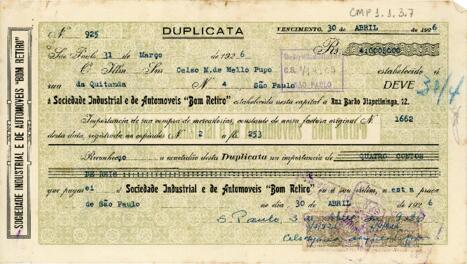 CMP 1.1.3.7
N 925 DUPLICATA VENCIMENTO, 30 de ABRIL de 1926
São Paulo 31 de Março de 1926 Rs. 4:000$000
O Illmo Snr Celso M. de Mello Pupo estabelecido á
da Quitanda N 4 São Paulo DEVE
á Sociedade Industrial e de Automoveis "Bom Retiro" estabelecida nesta capital á Rua Barão Itapetininga, 12.
Importancia de sua compra de mercadorias, constante de nossa factura original N 1662
desta data, registrada no copiador N 2 a fl 253
Reconheço a exactidão desta Duplicata na importancia de QUATRO CONTOS
DE REIS
que pagarei á Sociedade Industrial e de Automoveis "Bom Retiro" ou á sua ordem, n esta praça
de São Paulo no dia 30 de ABRIL de 1926
S. Paulo, 3 de Abril de 1926
SOCIEDADE INDUSTRIAL E DE AUTOMOVEIS "BOM RETIRO"